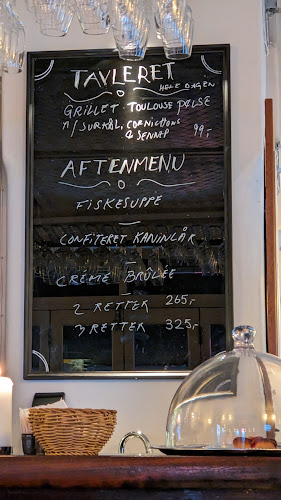 TAVLERET
HELE DAGEN
GRILLET TOULOUSE PØLSE
M/ SURKÅL, CORNICHONS
& SENNEP 99,-
AFTENMENU
FISKESUPPE
CONFITERET KANINLÅR
CRÈME BRÛLÉE
2 RETTER 265,-
3 RETTER 325,-